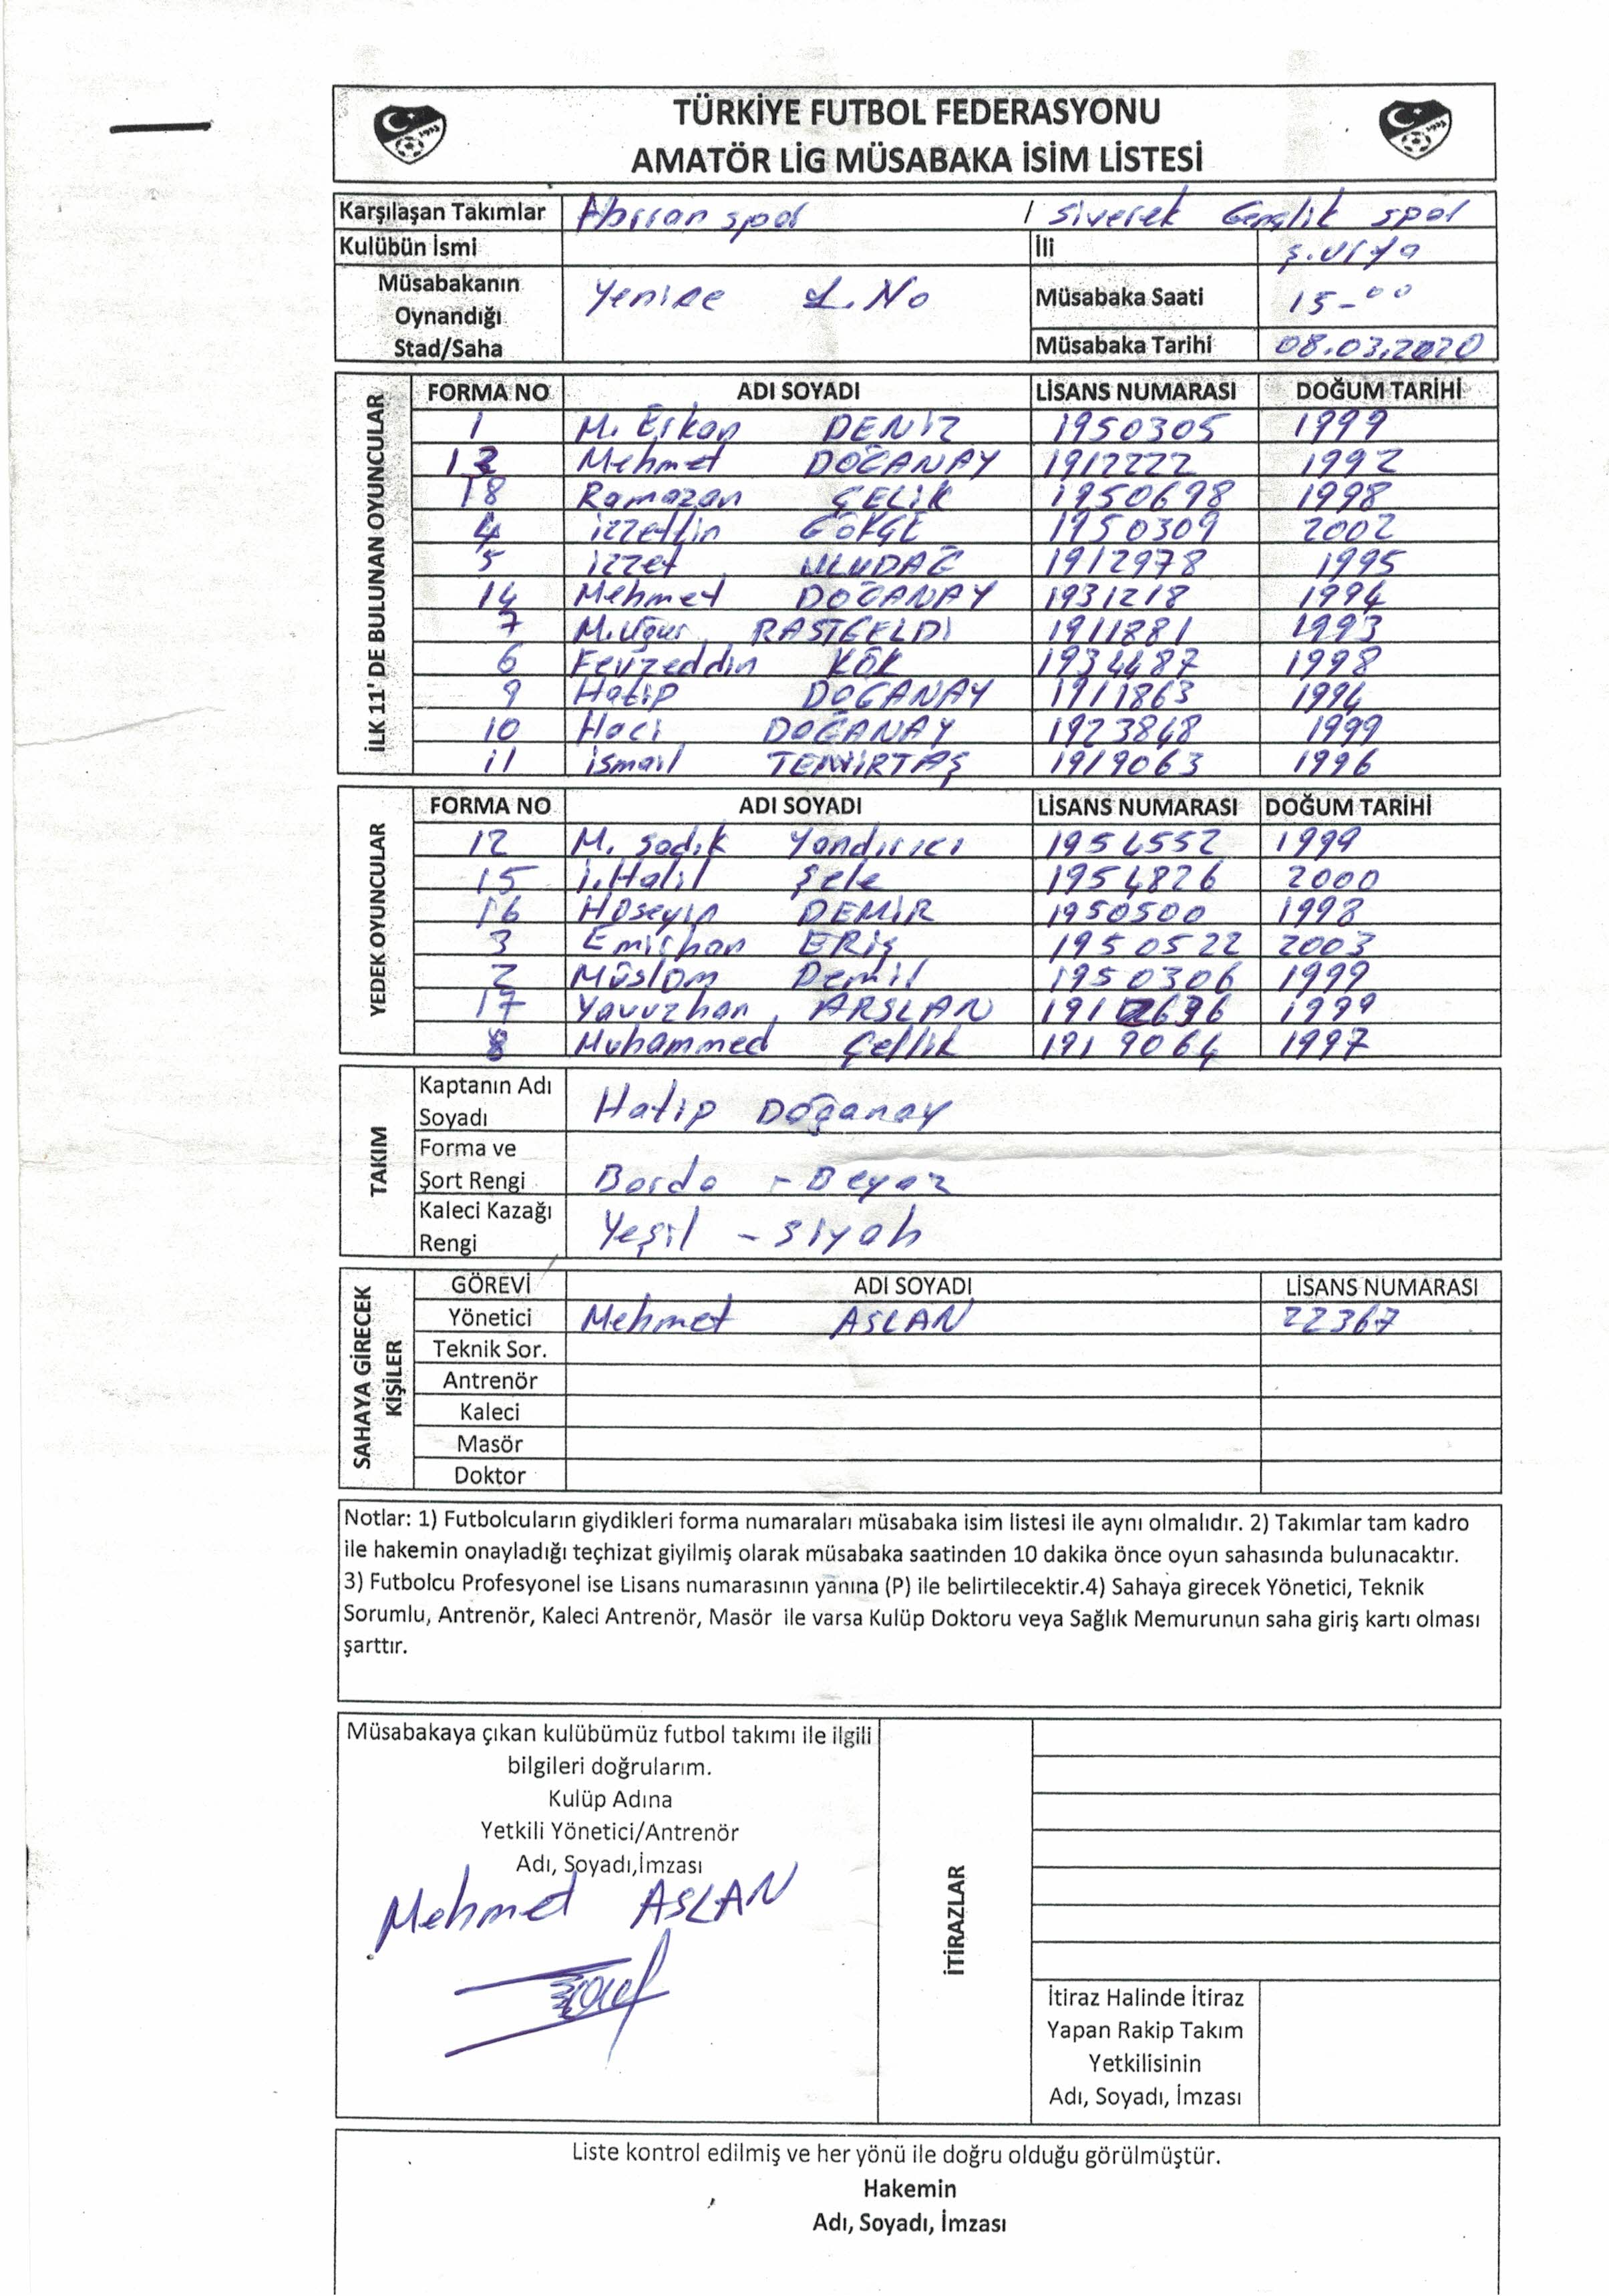 TÜRKİYE FUTBOL FEDERASYONU
AMATÖR LİG MÜSABAKA İSİM LİSTESİ
Karşılaşan Takımlar spor / Siverek Gençlik spor
Kulübün İsmi İli Ş.Urfa
Müsabakanın Oynandığı Stad/Saha Yenice 1.No Müsabaka Saati 15-00
Müsabaka Tarihi 08.03.2020
İLK 11' DE BULUNAN OYUNCULAR
FORMA NO ADI SOYADI LİSANS NUMARASI DOĞUM TARİHİ
1 M. Erkan DENİZ 1950305 1999
13 Mehmet DOĞANAY 1912222 1992
18 Ramazan ÇELİK 1950698 1998
4 izzettin GÖKÇE 1950309 2002
5 izzet ULUDAĞ 1912978 1995
14 Mehmet DOĞANAY 1931218 1994
7 M.Uğur RASTGELDİ 1911881 1993
6 Fevzeddin KÖK 1934487 1998
9 Hatip DOĞANAY 1911863 1994
10 Haci DOĞANAY 1923848 1999
11 ismail TEMİRTAŞ 1919063 1996
YEDEK OYUNCULAR
FORMA NO ADI SOYADI LİSANS NUMARASI DOĞUM TARİHİ
12 M. Sadık Yandırıcı 1954552 1999
15 İ.Halil Şele 1954826 2000
16 Hüseyin DEMİR 1950500 1998
3 Emirhan ERİŞ 1950522 2003
2 Müslüm Demir 1950306 1999
17 Yavuzhan ARSLAN 1912636 1999
8 Muhammed Çellik 1919064 1997
TAKIM
Kaptanın Adı Soyadı Hatip Doğanay
Forma ve Şort Rengi Bordo - Beyaz
Kaleci Kazağı Rengi Yeşil - Siyah
SAHAYA GİRECEK KİŞİLER
GÖREVİ ADI SOYADI LİSANS NUMARASI
Yönetici Mehmet ASLAN 22367
Teknik Sor.
Antrenör
Kaleci
Masör
Doktor
Notlar: 1) Futbolcuların giydikleri forma numaraları müsabaka isim listesi ile aynı olmalıdır. 2) Takımlar tam kadro
ile hakemin onayladığı teçhizat giyilmiş olarak müsabaka saatinden 10 dakika önce oyun sahasında bulunacaktır.
3) Futbolcu Profesyonel ise Lisans numarasının yanına (P) ile belirtilecektir.4) Sahaya girecek Yönetici, Teknik
Sorumlu, Antrenör, Kaleci Antrenör, Masör ile varsa Kulüp Doktoru veya Sağlık Memurunun saha giriş kartı olması
şarttır.
Müsabakaya çıkan kulübümüz futbol takımı ile ilgili
bilgileri doğrularım.
Kulüp Adına
Yetkili Yönetici/Antrenör
Adı, Soyadı,İmzası
Mehmet ASLAN
İTİRAZLAR
İtiraz Halinde İtiraz
Yapan Rakip Takım
Yetkilisinin
Adı, Soyadı, İmzası
Liste kontrol edilmiş ve her yönü ile doğru olduğu görülmüştür.
Hakemin
Adı, Soyadı, İmzası